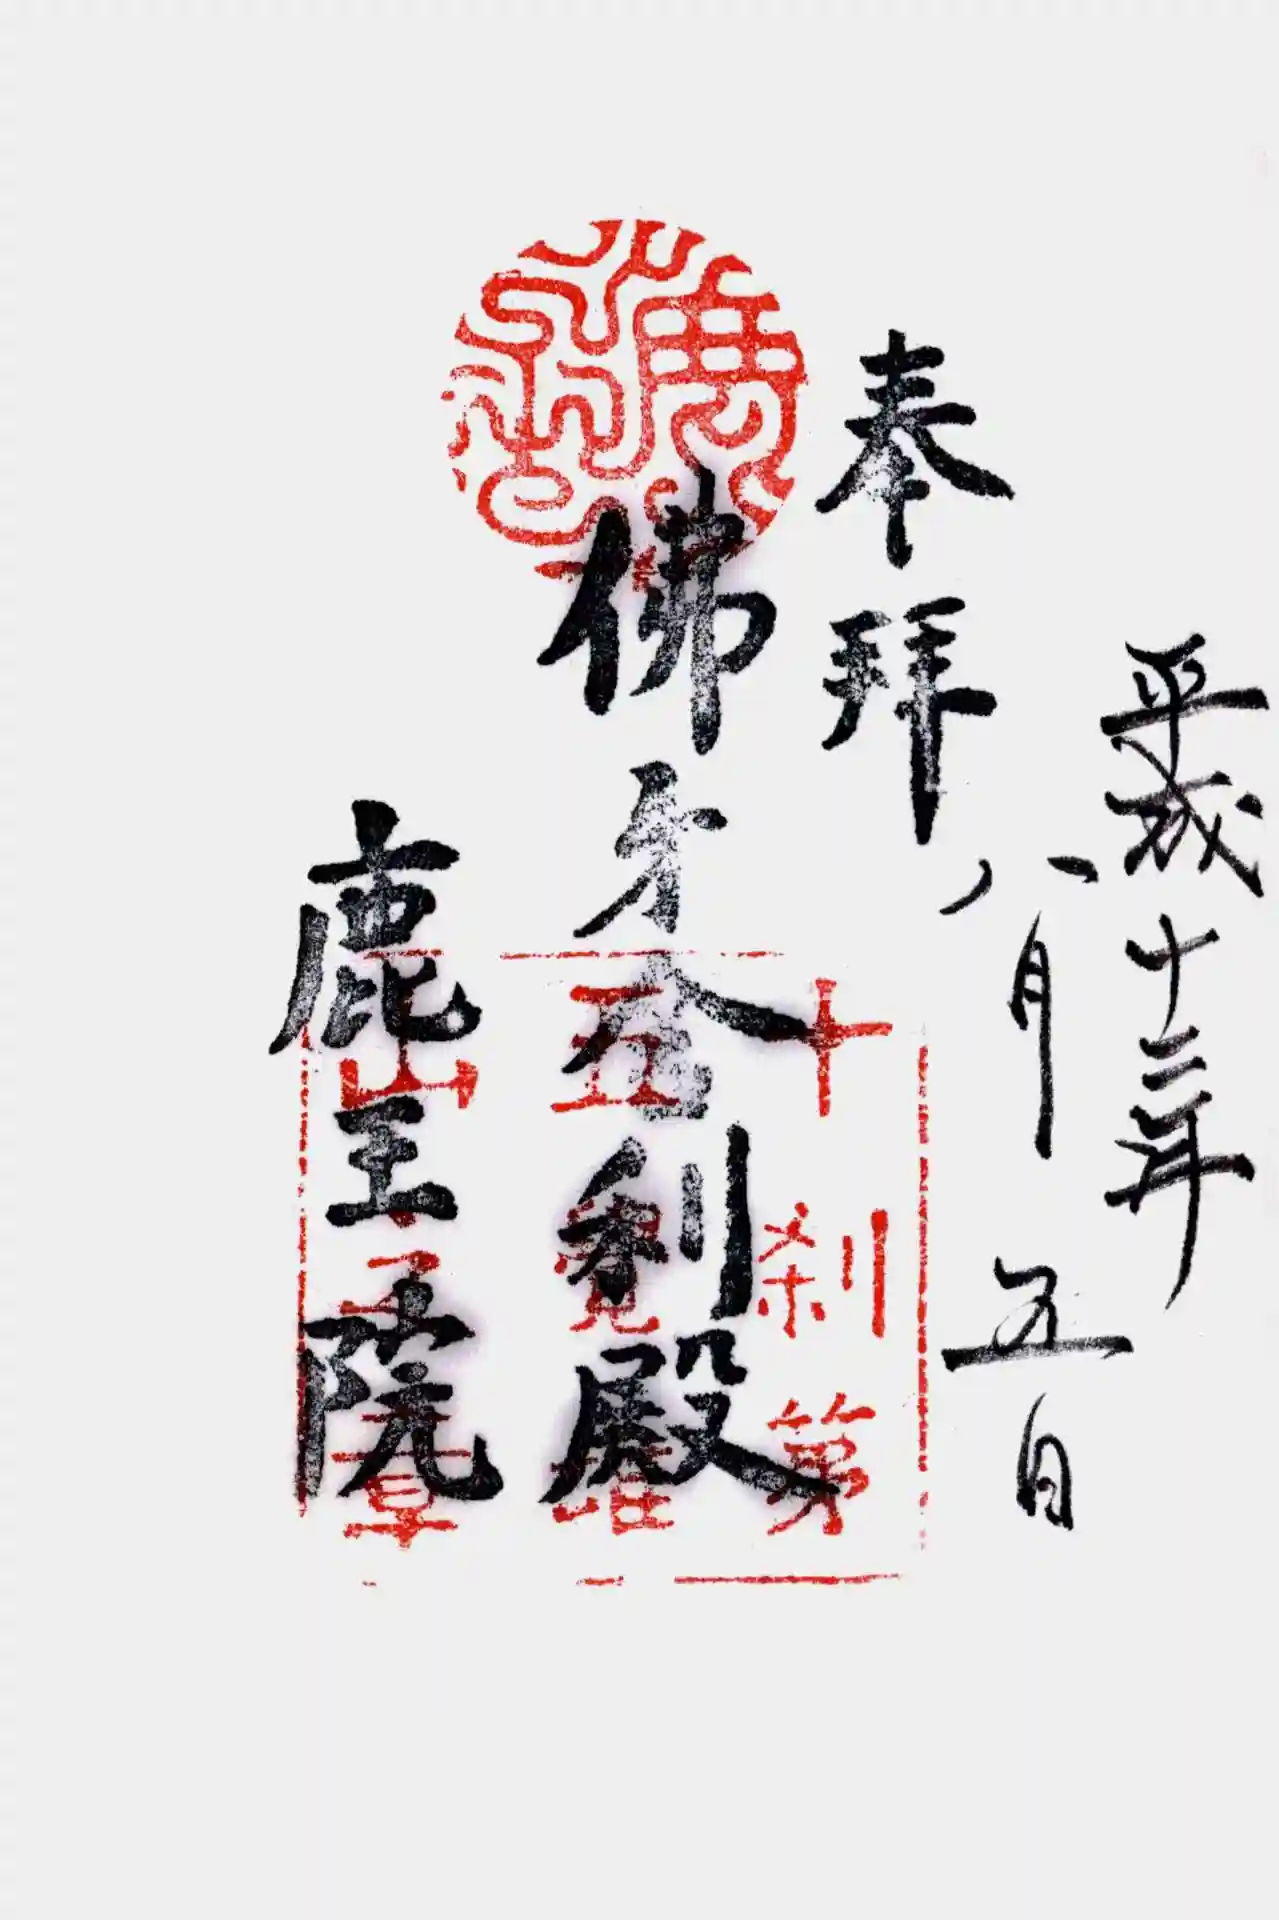 平成十二年
八月五日
奉拝
佛牙舎利殿
鹿王院
十刹第
五覺雄